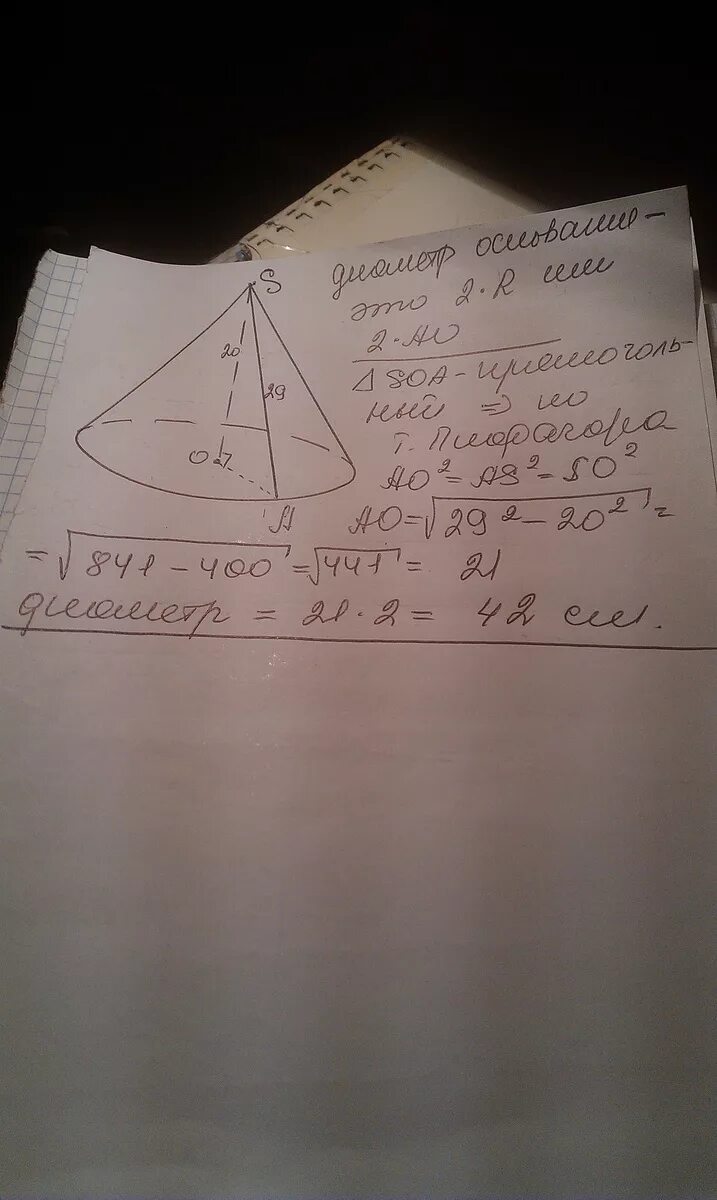 S
20
29
O
A
диаметр основания -
это 2·R или
2·AO
△SOA - прямоуголь-
ный => по
т. Пифагора
AO² = AS² = SO²
AO = √29² - 20² =
= √841 - 400 = √441 = 21
диаметр = 21·2 = 42 см.